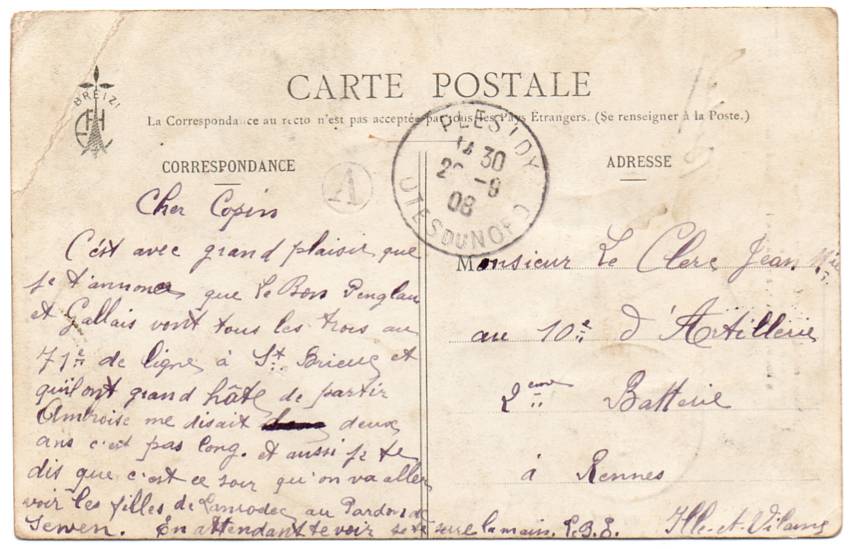 BREIZ
CARTE POSTALE
La Correspondance au recto n'est pas acceptée par tous les Pays Étrangers. (Se renseigner à la Poste.)
CORRESPONDANCE
A
Cher Copin
C'est avec grand plaisir que
je t'annonce que Le Bon Penglau
et Gallais vont tous les trois au
71e de ligne à St Brieuc et
qu'il ont grand hâte de partir
Ambroise me disait deux
ans c'est pas long. et aussi je te
dis que c'est ce soir qu'on va aller
voir les filles de Lanrodec au Pardon de
Senven. En attendant te voir je te serre la main. L.B.E.
PLÉSIDY
14 30
2 -9
08
COTES DU NORD
ADRESSE
Monsieur Le Clerc Jean Mie
au 10e d'Artillerie
2eme Batterie
à Rennes
Ille-et-Vilaine